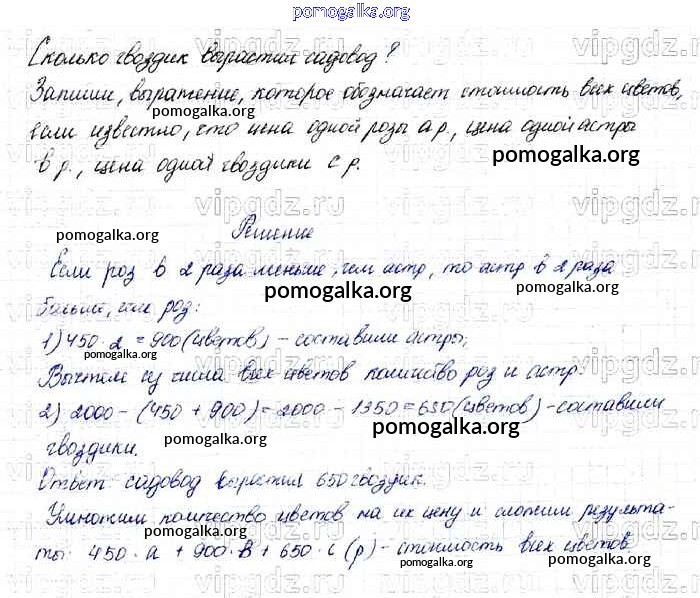 pomogalka.org
Сколько гвоздик вырастил садовод?
Запиши, выражение, которое обозначает стоимость всех цветов,
если известно, что цена одной розы а р., цена одной астры
в р., цена одной гвоздики с р.
pomogalka.org
Решение
pomogalka.org
Если роз в 2 раза меньше, чем астр, то астр в 2 раза
больше, чем роз:
pomogalka.org
1) 450 · 2 = 900 (цветов) - составили астры;
pomogalka.org
Вычтем из числа всех цветов количество роз и астр:
2) 2000 - (450 + 900) = 2000 - 1350 = 650 (цветов) - составили
pomogalka.org
гвоздики.
pomogalka.org
Ответ: садовод вырастил 650 гвоздик.
Умножим количество цветов на их цену и сложим результа-
pomogalka.org
ты: 450 · а + 900 · в + 650 · с (р) - стоимость всех цветов.
pomogalka.org